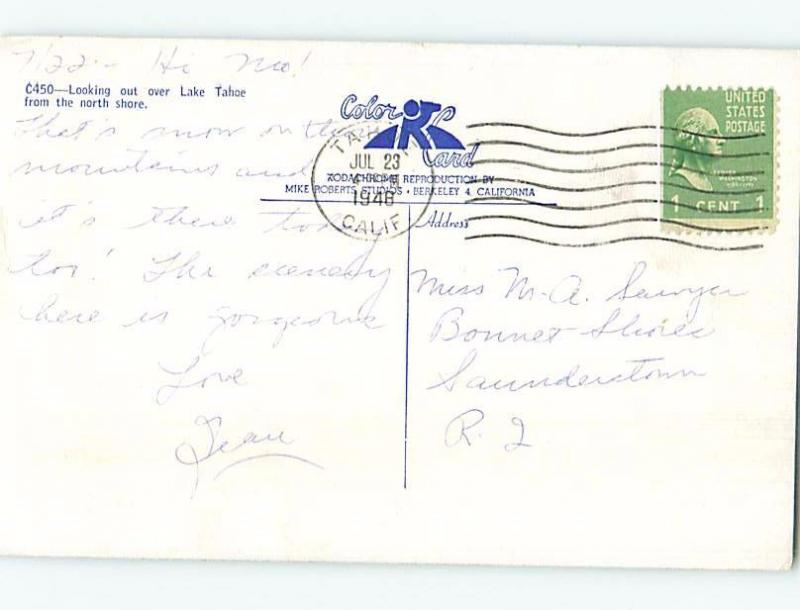 7/22 - Hi Mo!
C450—Looking out over Lake Tahoe
from the north shore.
That's snow on the
mountains and
it's there today
too! The scenery
here is gorgeous
Love
Jean
Color Card
KODACHROME REPRODUCTION BY
MIKE ROBERTS STUDIOS • BERKELEY 4, CALIFORNIA
TAHOE
JUL 23
1948
CALIF
UNITED
STATES
POSTAGE
WASHINGTON
1 CENT 1
Address
Miss M. A. Sawyer
Bonnet Shores
Saunderstown
R. I.